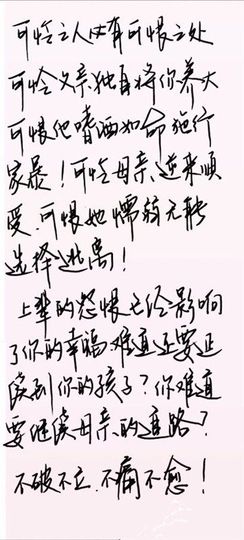 可怜之人必有可恨之处
可怜父亲独自将你养大
可恨他嗜酒如命施行
家暴！可怜母亲逆来顺
受、可恨她懦弱无能
选择逃离！
上辈的怨恨已经影响
了你的幸福难道还要延
续到你的孩子？你难道
要继续母亲的道路？
不破不立、不痛不愈！